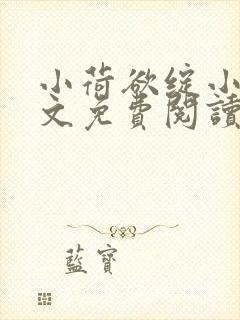 小荷欲绽小
文免費閱讀
藍寶